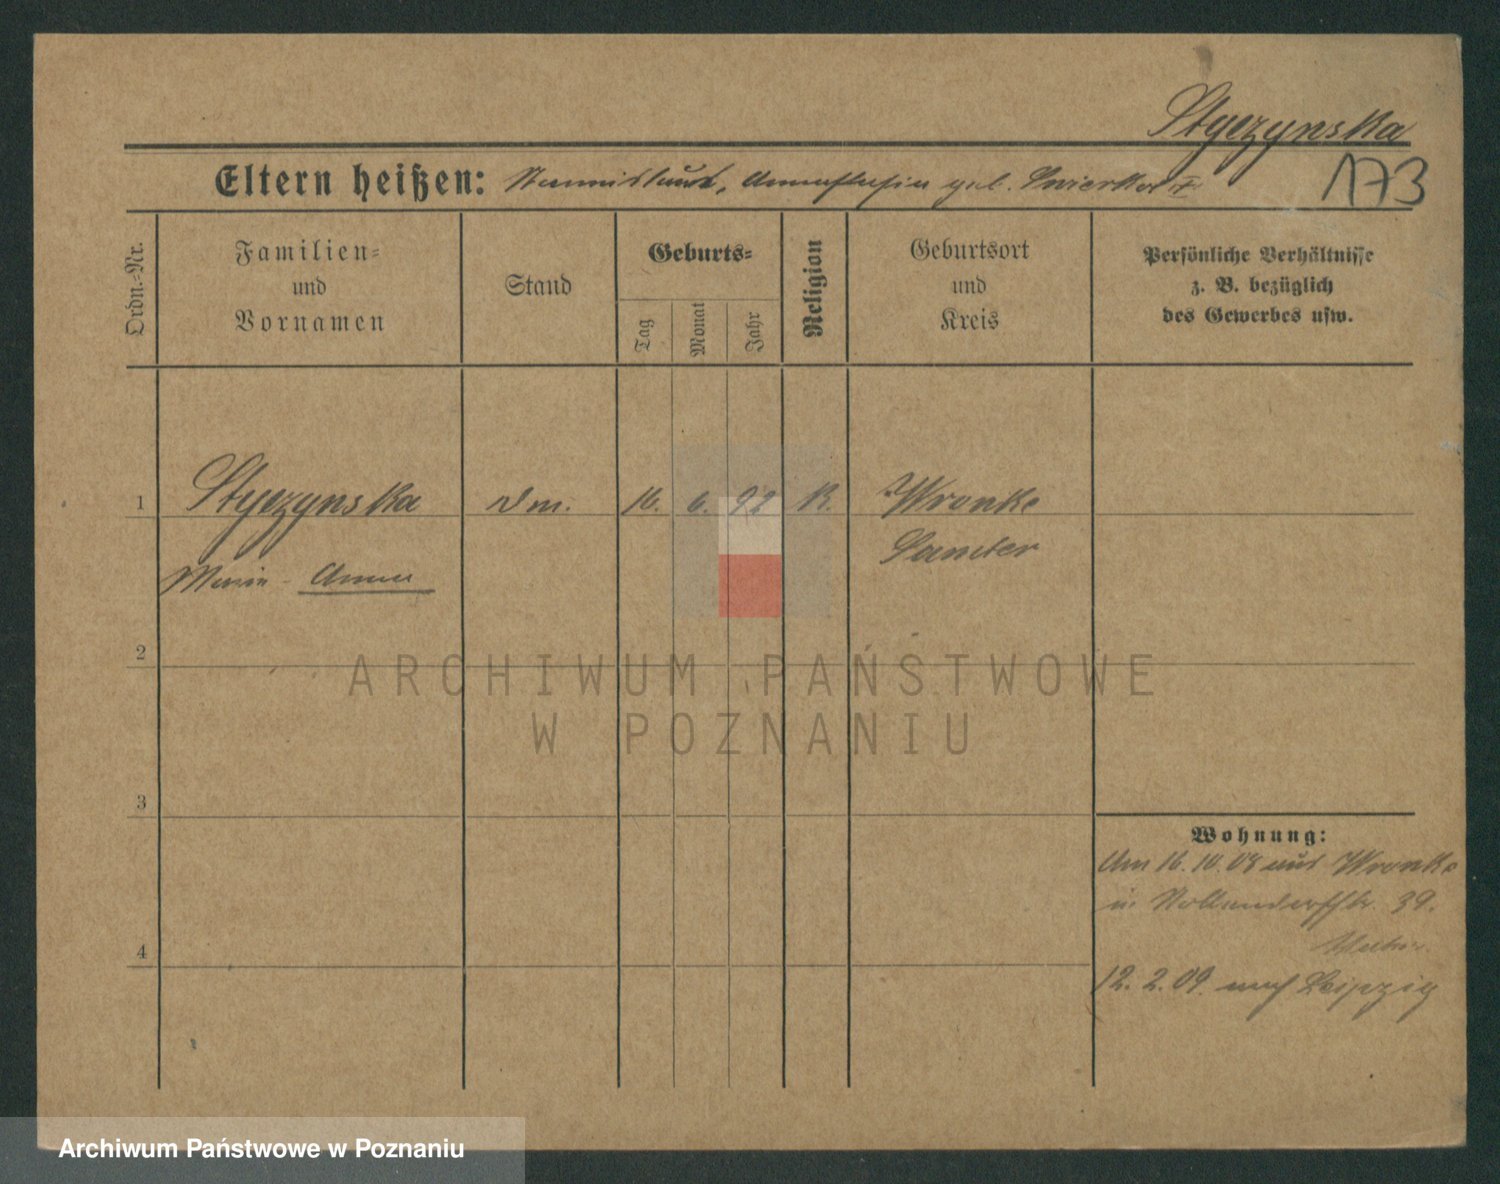 Styczynska
Eltern heißen: Stanislaus, Anastasia geb. Swierkot
173
Ordn.-Nr.
Familien-
und
Vornamen
Stand
Geburts-
Tag
Monat
Jahr
Religion
Geburtsort
und
Kreis
Persönliche Verhältnisse
z. B. bezüglich
des Gewerbes usw.
1 Styczynska Dm. 16. 6. 92 K. Wronke
Samter
Marie - Anna
2
ARCHIWUM PAŃSTWOWE
W POZNANIU
3
Wohnung:
Am 16.10.08 aus Wronke
in 39.
4
12. 2. 09. nach Leipzig
Archiwum Państwowe w Poznaniu